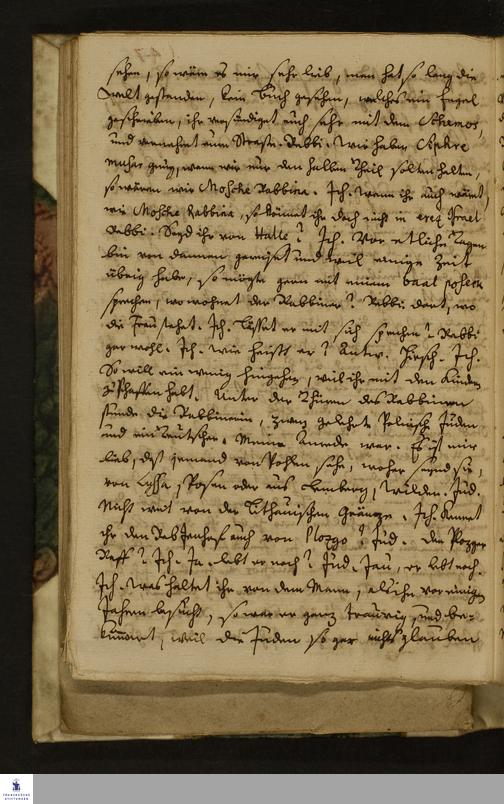 sehen, so wäre es mir sehr lieb, man hat so lang die
Welt gestanden, kein Buch gesehen, welches ein Engel
geschrieben, ihr versündiget euch sehr mit dem Schemos,
und vermehret eure Strafe. Rabbi. Wir haben Siphre
muhar genug, wenn wir nur den halben Theil solten halten,
so wären wir Mosche Rabbina. Ich. Wenn ihr auch wäret,
wie Mosche Rabbina, so kommt ihr doch nicht in erez Israel
Rabbi. Seyd ihr von Halle? Ich. Vor etlichen Tagen
bin von dannen gereist und weil einige Zeit
übrig habe, so mögte gern mit einem baal
sprechen, wo wohnet der Rabbiner? Rabbi dort, wo
die Frau stehet. Ich. Lässet er mit sich sprechen? Rabbi
gar wohl. Ich. Wie heist er? Antw. Hirsch. Ich.
So will ein wenig hingehen, weil ihr mit den Kindern
zu schaffen habt. Unter der Thüre des Rabbinen
stunde die Rabbinerin, zwey gelehrte Polnische Juden
und ein Teutscher. Meine Anrede war. Es ist mir
lieb, daß jemand von Pohlen sehe, woher seynd sie,
von Lyssa, Posen oder aus Lemberg, Wilden. Jüd.
Nicht weit von der Lithauischen Gräntze. Ich. Kennet
ihr den Rab auch von Plozgo? Jüd. Den Plozger
Raff? Ich. Ja. lebt er noch? Jüd. Jau, er lebt noch.
Ich. Was haltet ihr von dem Mann, als ihn vor einigen
Jahren besucht, so war er gantz traurig, und be-
kümmert, weil die Juden so gar nichts glauben